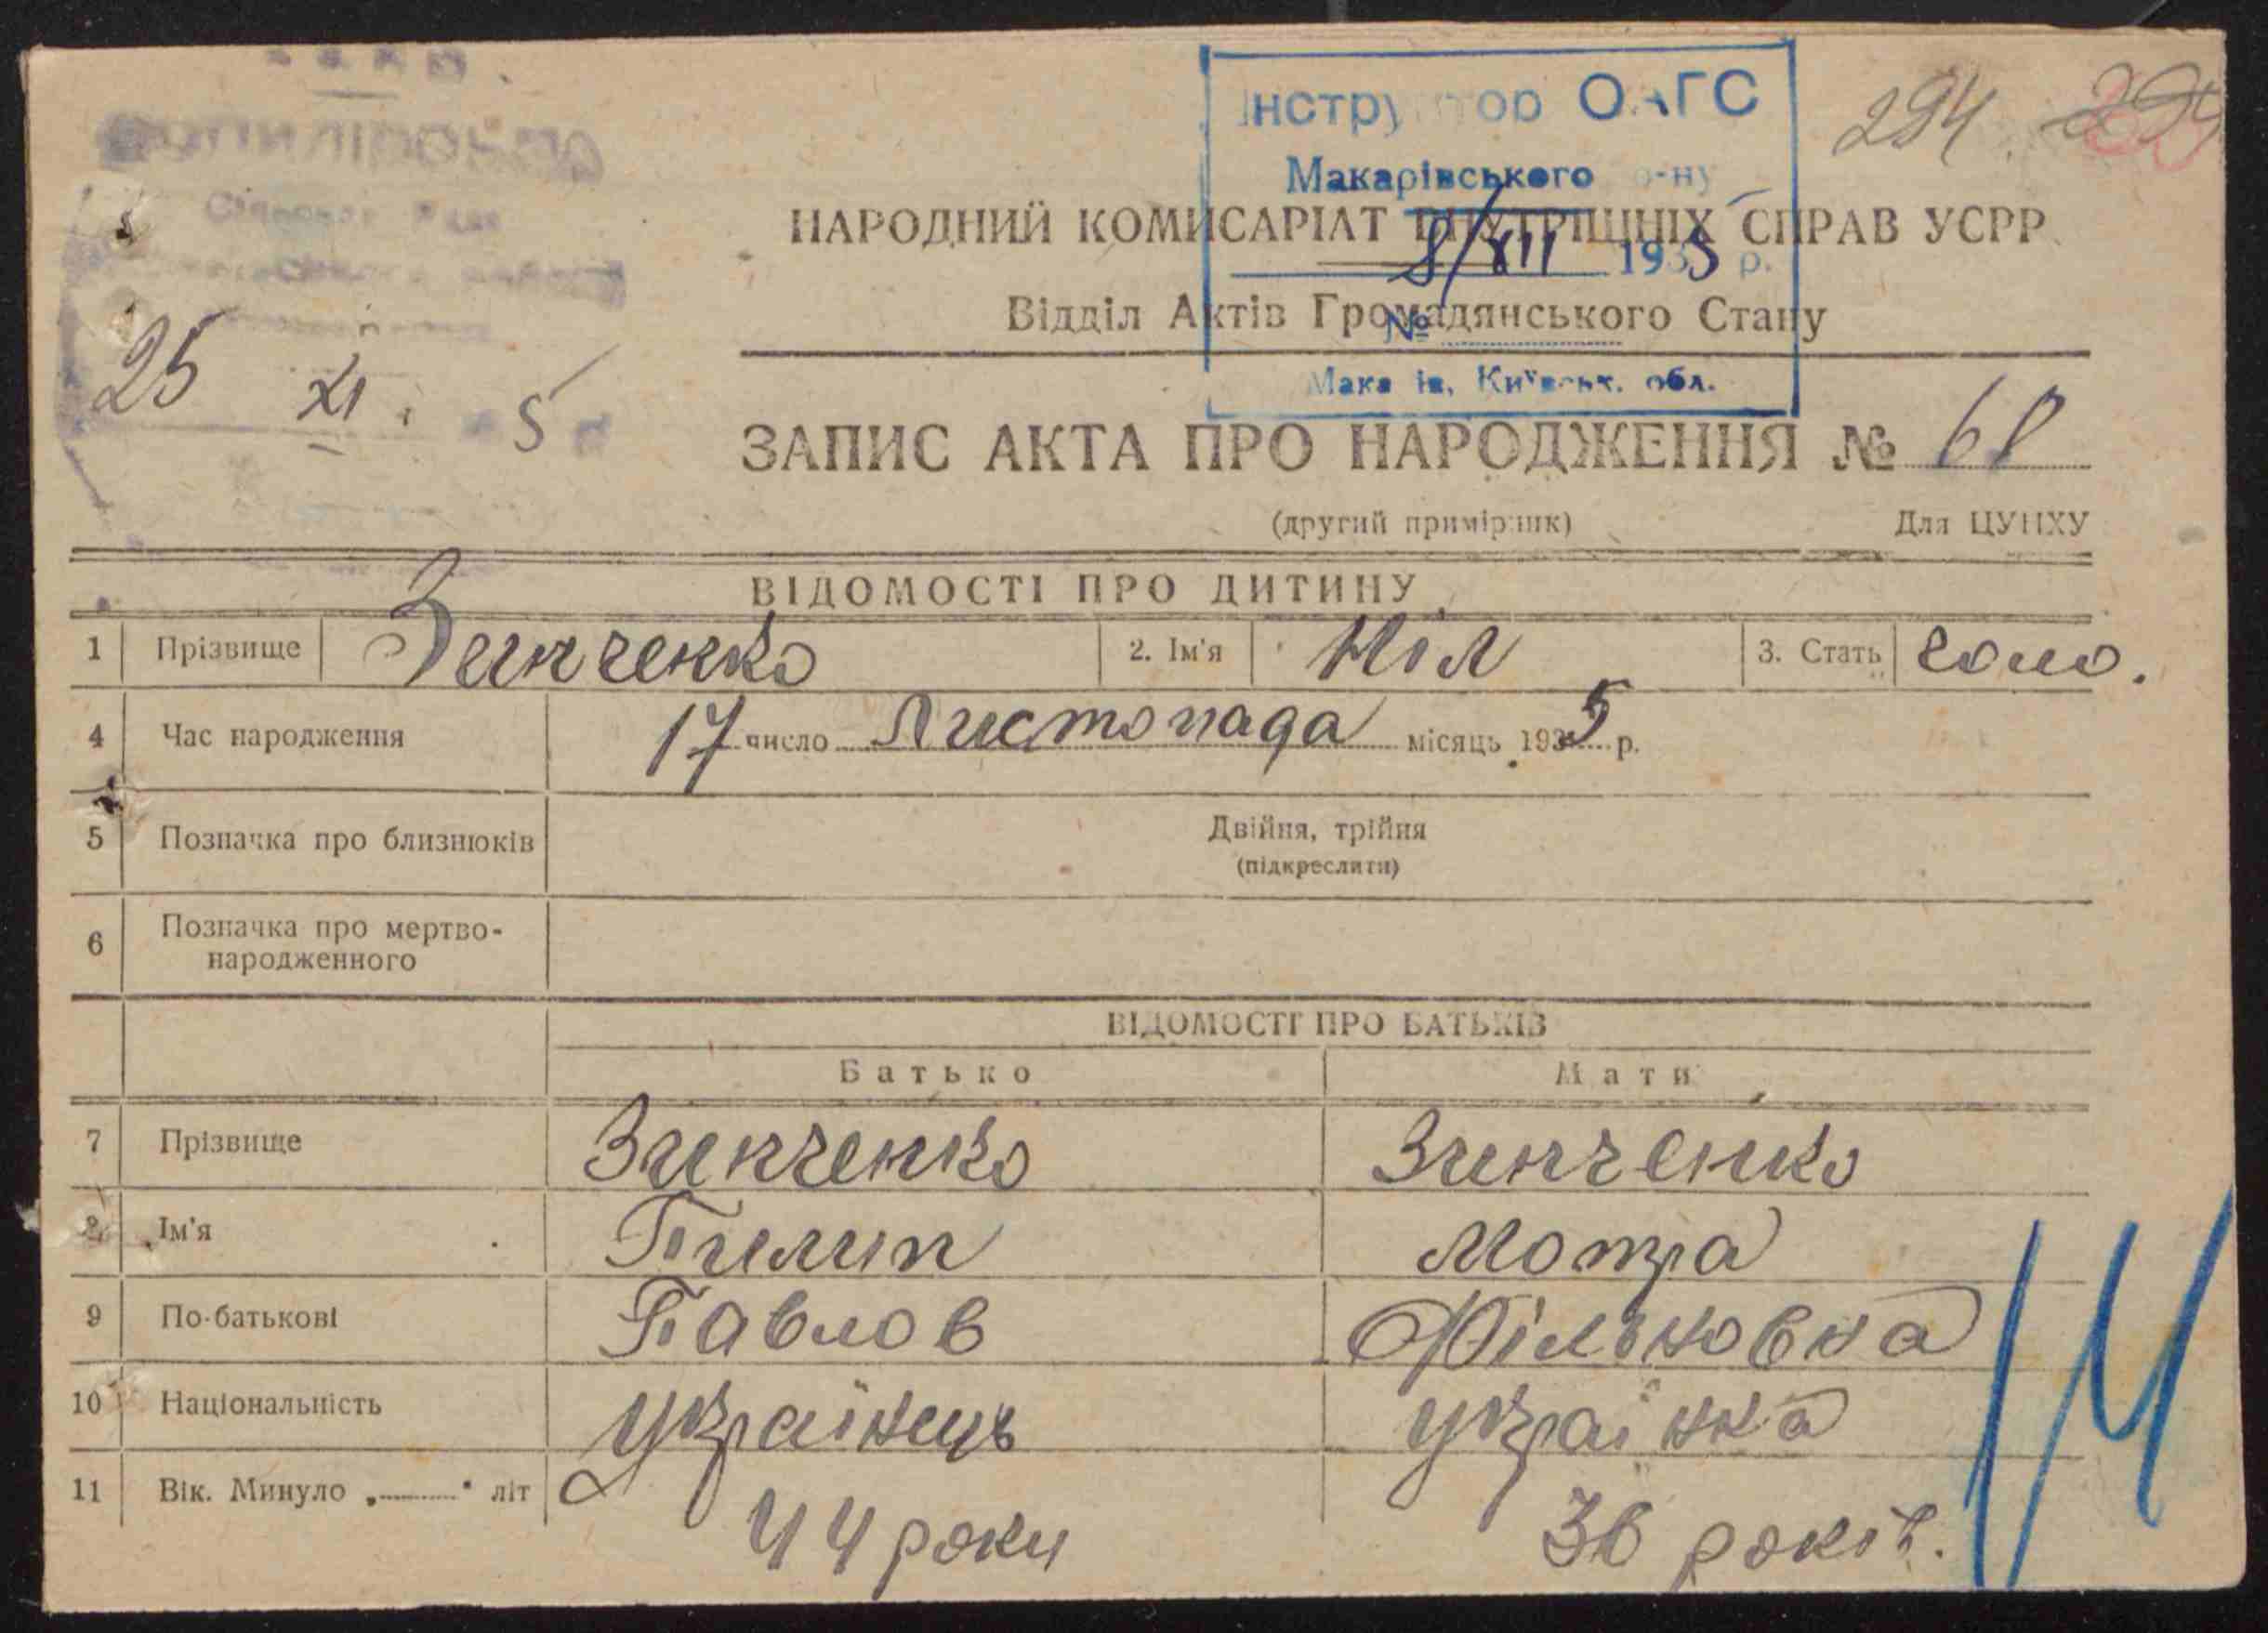 294
Інструктор ОАГС
Макарівського р-ну
8/XII 1935 р.
№
Київськ. обл.
25 XI 5
НАРОДНИЙ КОМИСАРІАТ ВНУТРІШНІХ СПРАВ УСРР
Відділ Актів Громадянського Стану
ЗАПИС АКТА ПРО НАРОДЖЕННЯ № 68
(другий примірник) Для ЦУНХУ
ВІДОМОСТІ ПРО ДИТИНУ
1 Прізвище Зинченко 2. Ім'я Ніл 3. Стать чоло.
4 Час народження 17 число Листопада місяць 1935 р.
5 Позначка про близнюків Двійня, трійня
(підкреслити)
6 Позначка про мертво-
народженного
ВІДОМОСТІ ПРО БАТЬКІВ
Батько Мати
7 Прізвище Зинченко Зинченко
8 Ім'я Пилип Мотра
9 По-батькові Павлов Фільковна
10 Національність Українець Українка
11 Вік. Минуло „......" літ 44 роки 36 років.